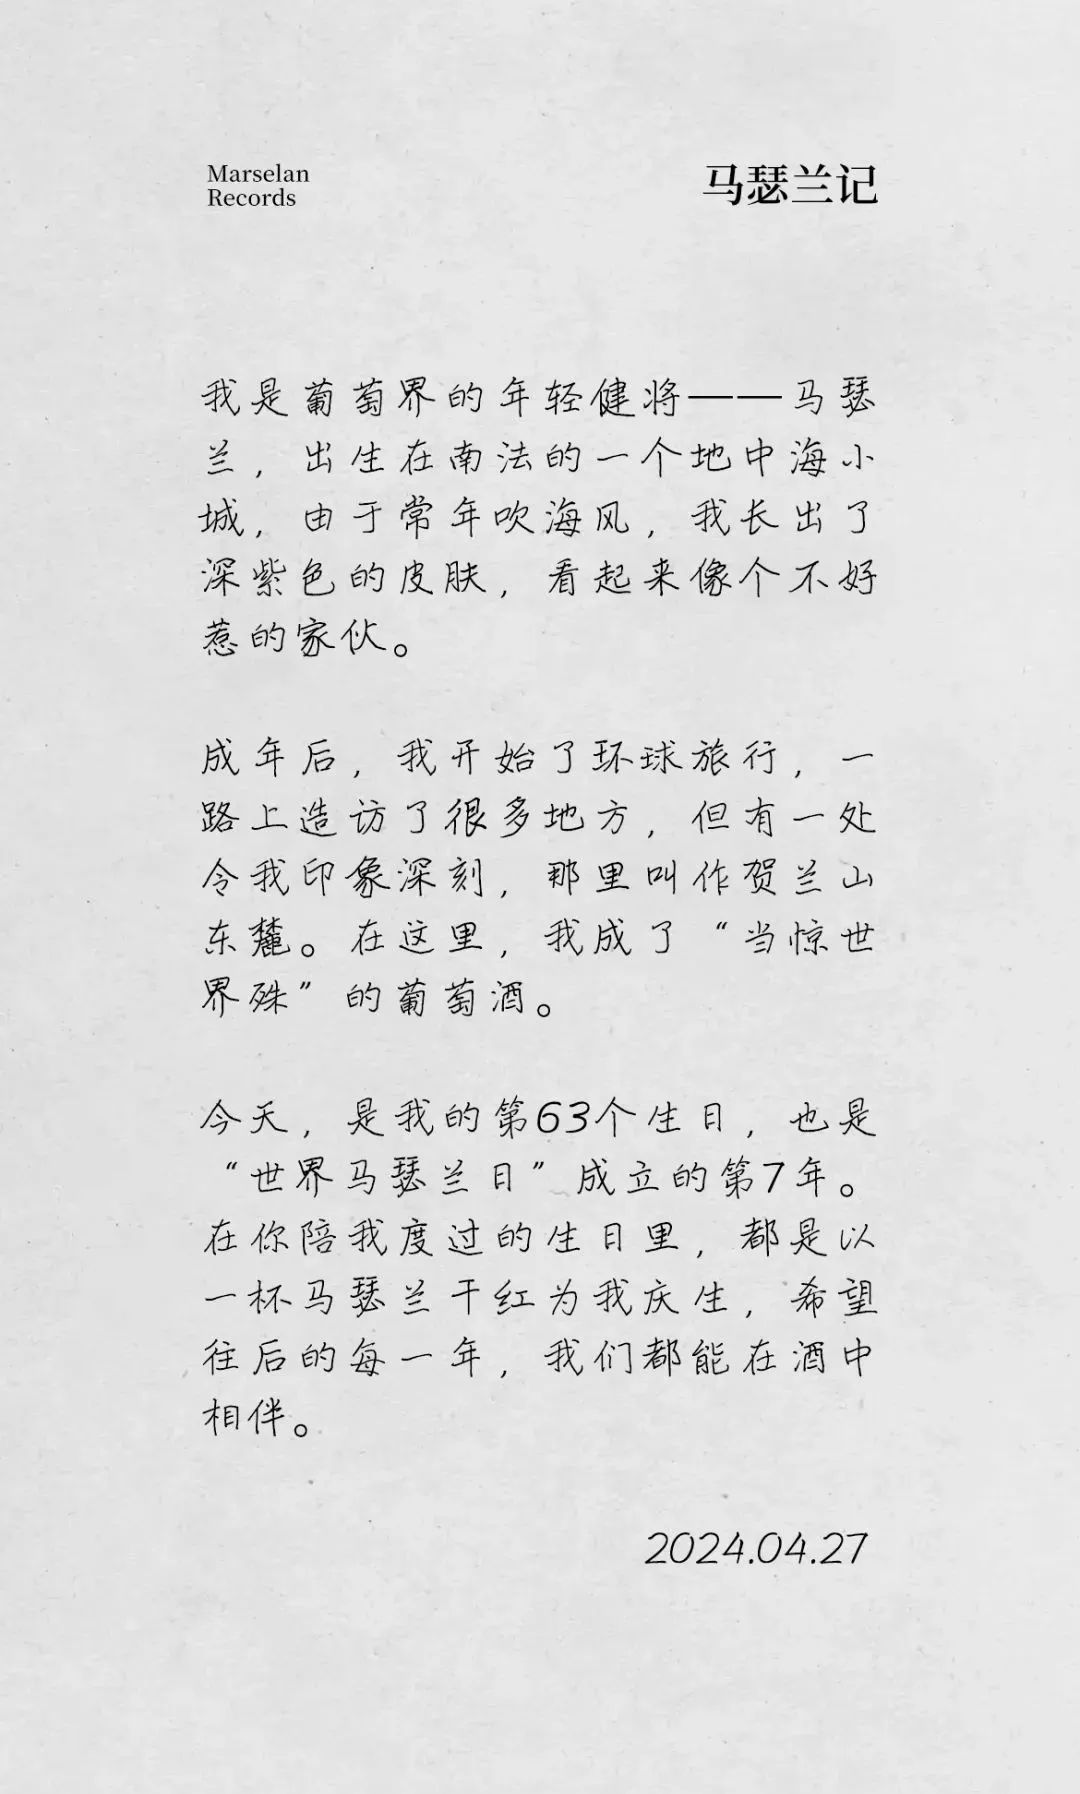 Marselan
Records
马瑟兰记
我是葡萄界的年轻健将——马瑟
兰，出生在南法的一个地中海小
城，由于常年吹海风，我长出了
深紫色的皮肤，看起来像个不好
惹的家伙。
成年后，我开始了环球旅行，一
路上造访了很多地方，但有一处
令我印象深刻，那里叫作贺兰山
东麓。在这里，我成了“当惊世
界殊”的葡萄酒。
今天，是我的第63个生日，也是
“世界马瑟兰日”成立的第7年。
在你陪我度过的生日里，都是以
一杯马瑟兰干红为我庆生，希望
往后的每一年，我们都能在酒中
相伴。
2024.04.27